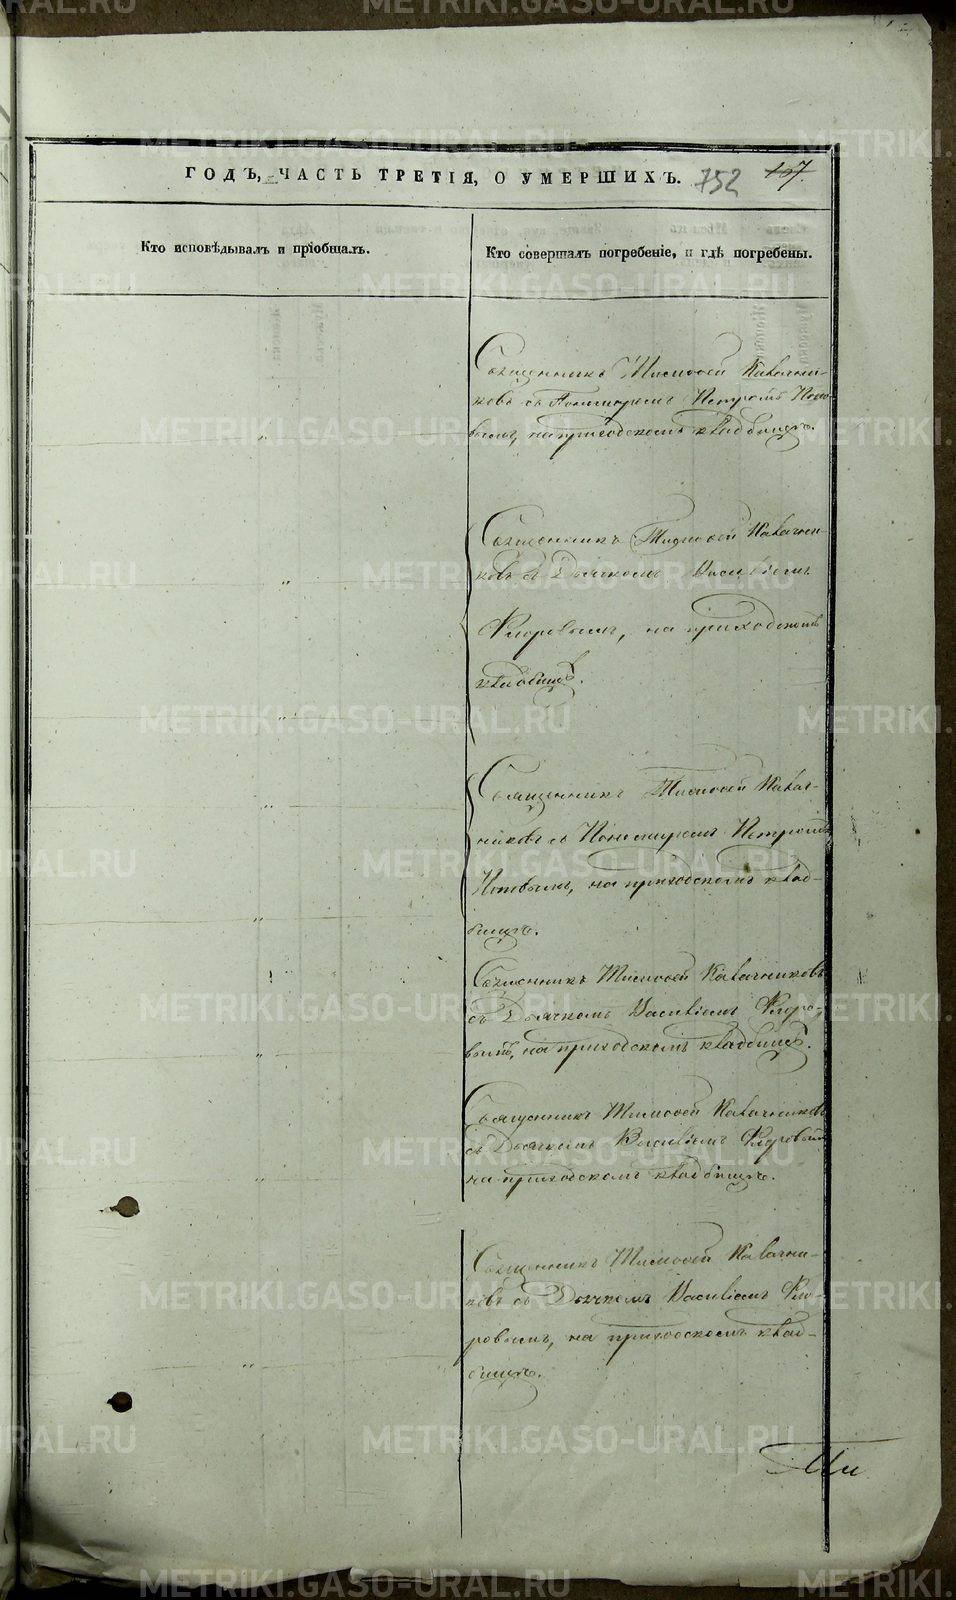 ГОДЪ, ЧАСТЬ ТРЕТІЯ, О УМЕРШИХЪ. 752 167.
Кто исповѣдывалъ и пріобщалъ.
Кто совершалъ погребеніе, и гдѣ погребены.
Священникъ Тимофей Кавачни-
ковъ съ Пономаремъ Петромъ Попо
вымъ, на приходскомъ кладбищѣ.
Священникъ Тимофей Кавачни-
ковъ съ Дьячкомъ Василіемъ
Флоровымъ, на приходскомъ
кладбищѣ.
Священникъ Тимофей Кавач-
никовъ съ Пономаремъ Петромъ
Поповымъ, на приходскомъ клад-
бищѣ.
Священникъ Тимофей Кавачниковъ
съ Дьячкомъ Василіемъ Флоро-
вымъ, на приходскомъ кладбищѣ.
Священникъ Тимофей Кавачниковъ
съ Дьячкомъ Василіемъ Флоровымъ
на приходскомъ кладбищѣ.
Священникъ Тимофей Кавачни-
ковъ съ Дьячкомъ Василіемъ Фло-
ровымъ, на приходскомъ клад-
бищѣ.
METRIKI.GASO-URAL.RU